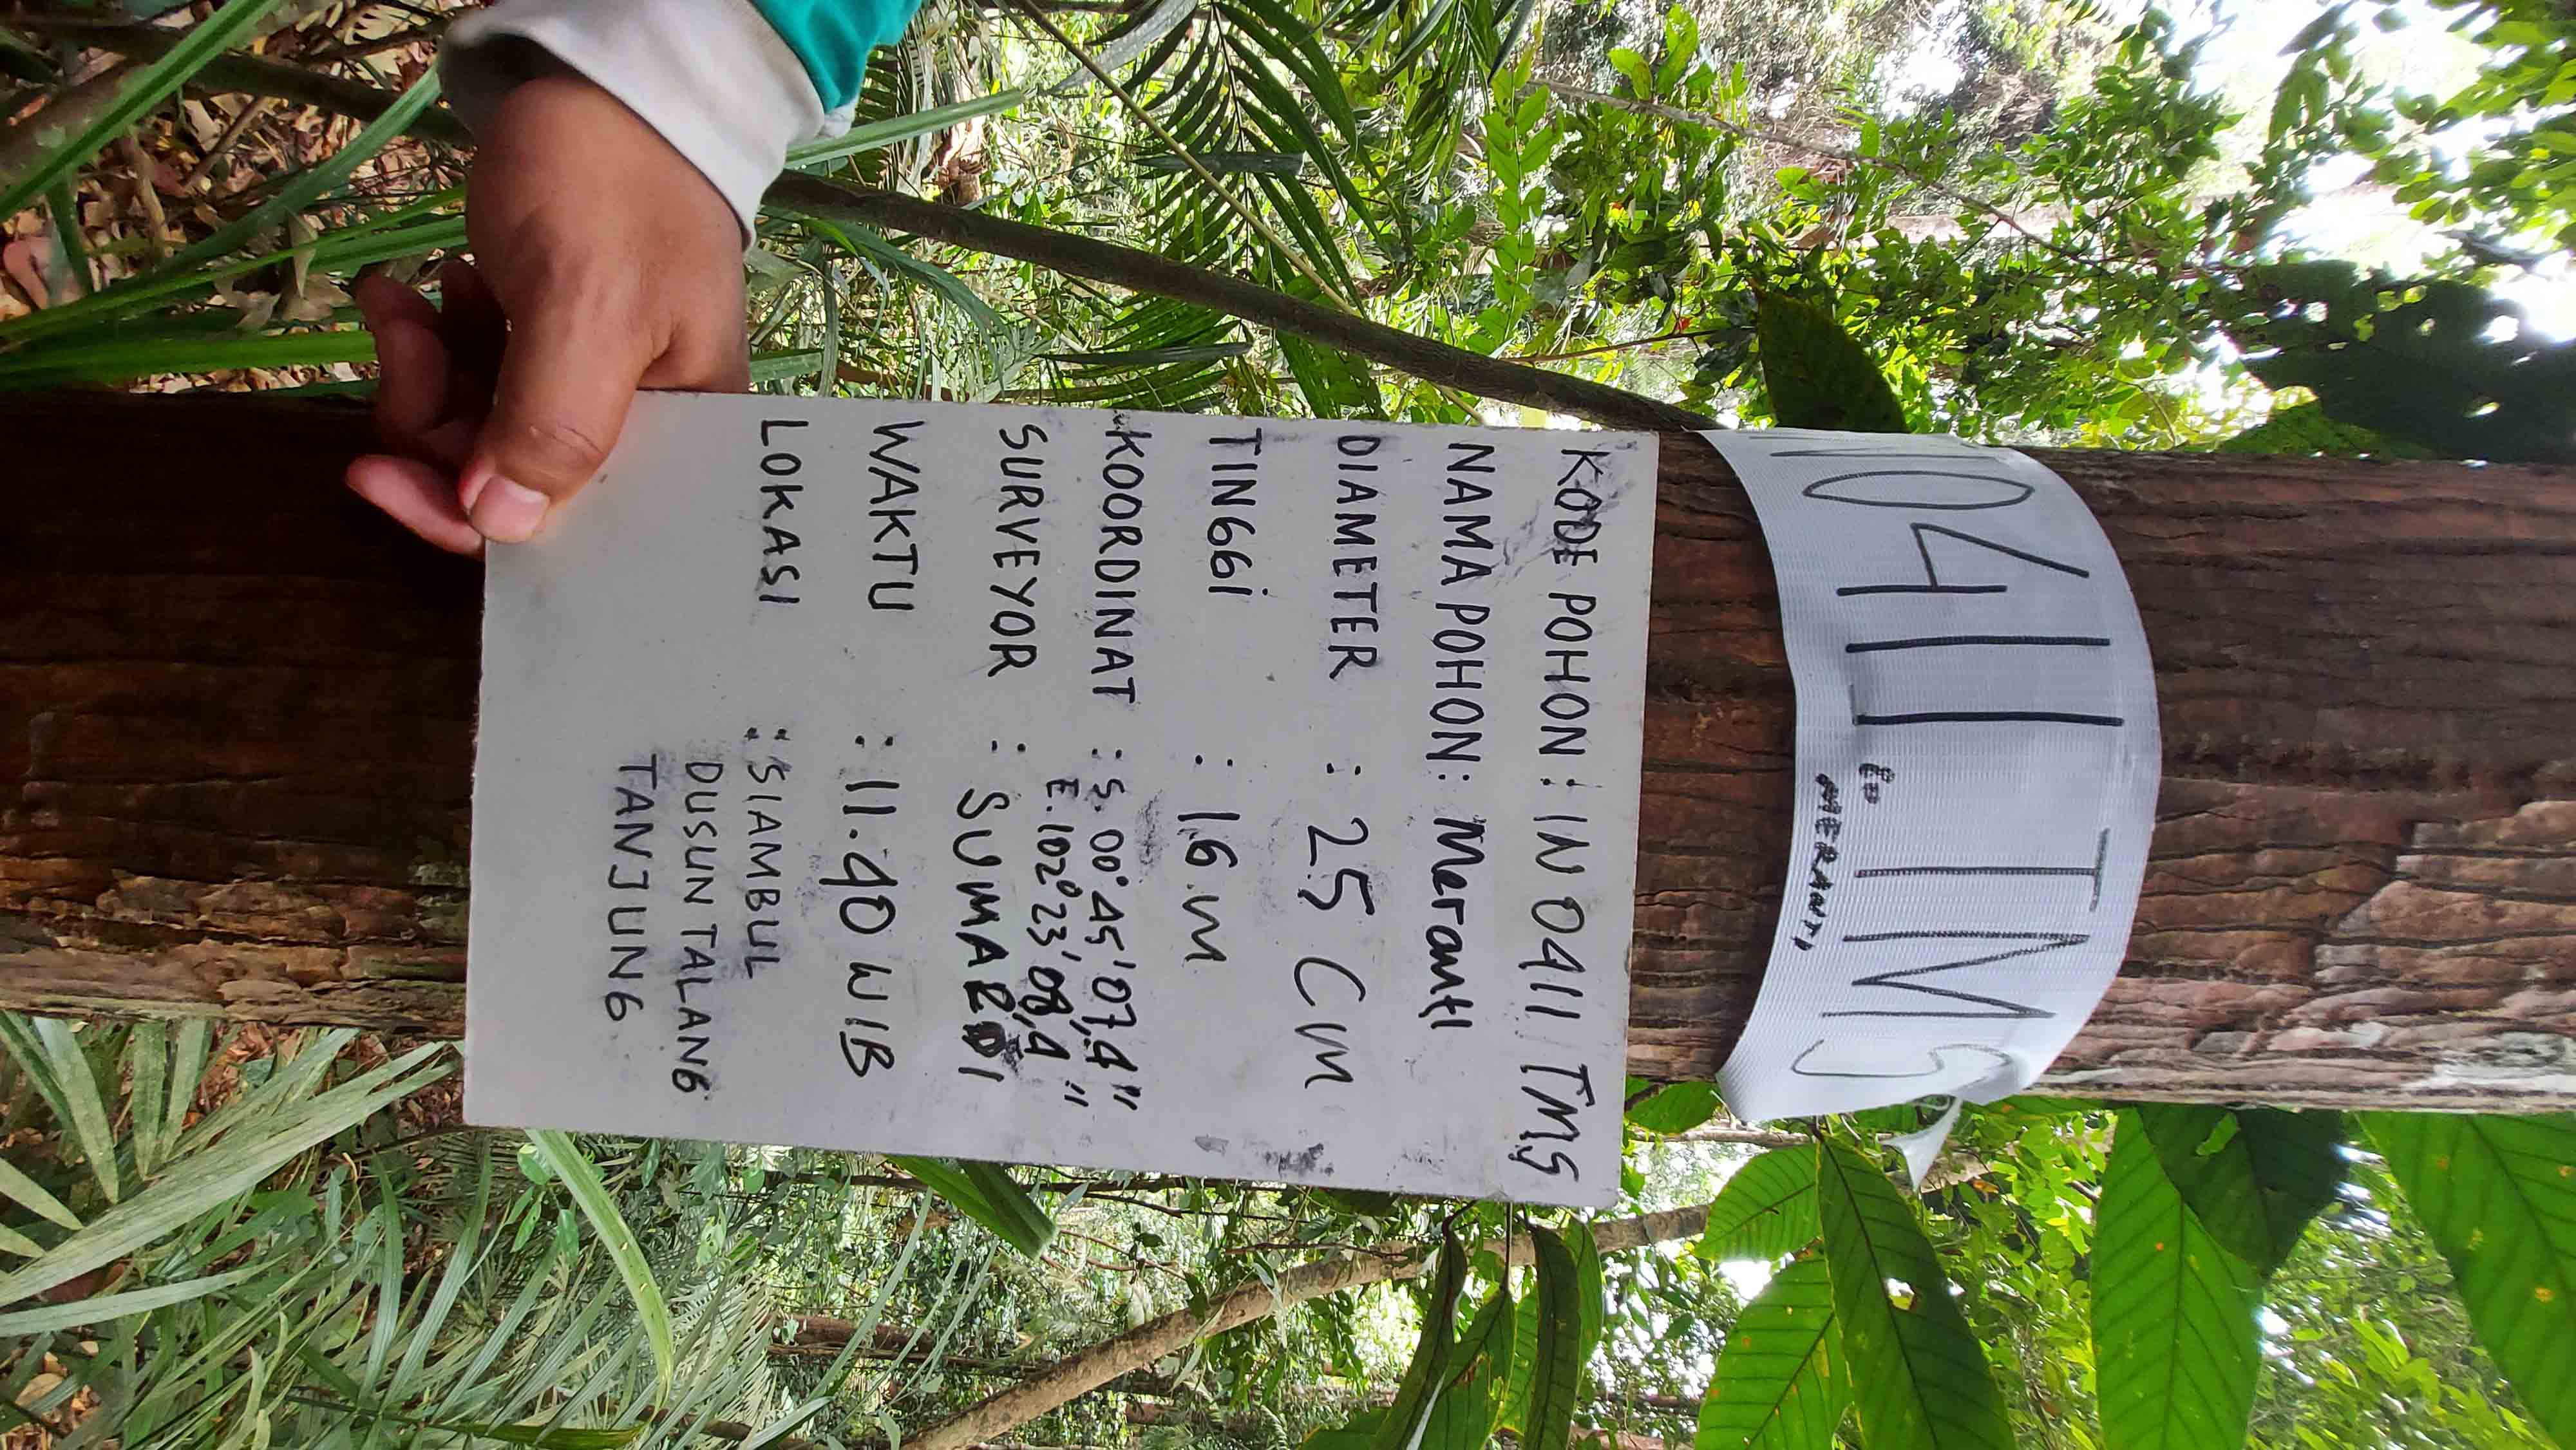 N0411 TMS
MERANTI
KODE POHON : IN 0411 TMS
NAMA POHON: Meranti
DIAMETER : 25 CM
TINGGi : 16 m
KOORDINAT : S. 00° 45' 07,4"
E. 102° 23' 08,4"
SURVEYOR : SUMARDI
WAKTU : 11.40 WIB
LOKASI : SIAMBUL
DUSUN TALANG
TANJUNG